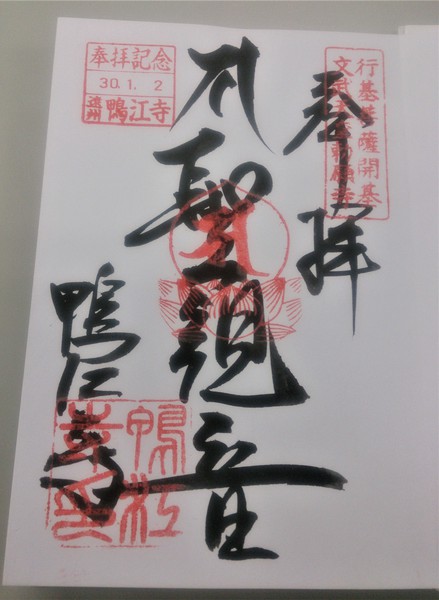 行基菩薩開基
文武天皇勅願寺
奉拝
聖観音
奉拝記念
30.1.2
遠州 鴨江寺
鴨江寺
鴨江寺印